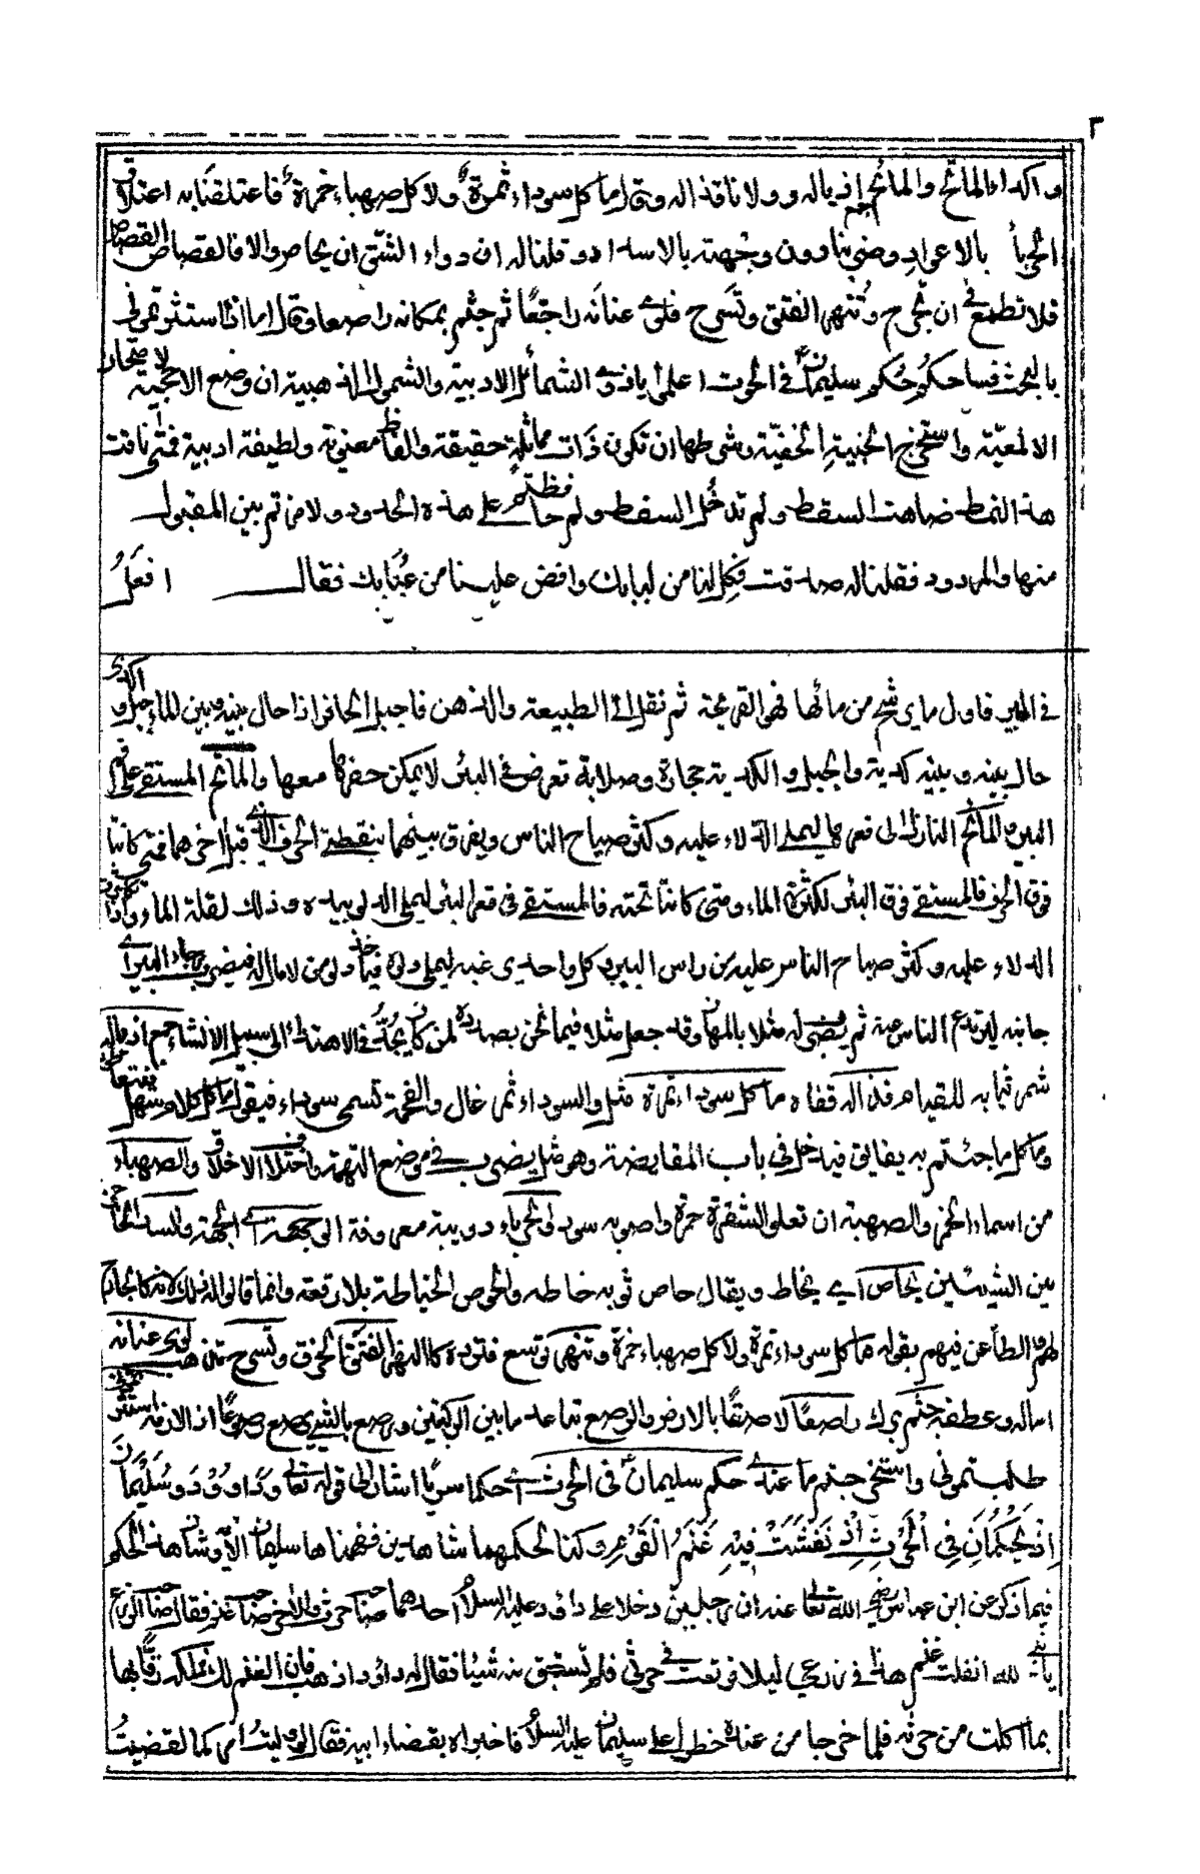 ٣
واكدى الماتح والمائح اذباله وولا ناقذاله وقال ما كل سوداء تمرة ولا كل صهباء خمرة فاعتلقنا به اعتلاق
الحرباء بالاعواد وضربنا دون وجهته بالاسداد وقلنا له ان دواء الشق ان يحاص والا فالقصاص القصاص
فلا تطمع في ان تجرح وتنهر الفتق وتسرح فلوى عنانه راجعا ثم جثم بمكانه راصعا وقال اما اذا استثرتموني
بالبحث فساحكم حكم سليمان في الحرث اعلموا يا ذوي الشمائل الادبية والشمول الذهبية ان وضع الاحجية لامتحان
الالمعية واستخراج الخبية الخفية وشرطها ان تكون ذات مماثلة حقيقية والفاظ معنوية ولطيفة ادبية فمتى نافت
هذا النمط ضاهت السقط ولم تدخل السفط ولم حافظتم على هذه الحدود ولا مزتم بين المقبول
منها والمردود فقلنا له صدقت فكل لنا من لبابك وافض علينا من عبابك فقال افعل
في البير فاول ما يرشح من مائها فهي القريحة ثم نقل الى الطبيعة والذهن فاجبل الحافر اذا حال بينه وبين الماء جبل واكدى
حال بينه وبينه كدية والجبل والكدية حجارة وصلابة تعرض في البئر لا يمكن حفرها معها والماتح المستقي على فم
البير والمائح النازل الى قعرها ليملي الدلاء عليه وكثر صياح الناس ويفرق بينهما بنقطتي الحرف الذي قبل اخرهما فمتى كانتا
فوق الحرف فالمستقي فوق البئر لكثرة الماء ومتى كانتا تحته فالمستقي في قعر البئر ليملي الدلو بيده وذلك لقلة الماء واذا تكثر
الدلاء عليه وكثر صياح الناس عليه من راس البير وكل واحد يرغبه ليملي دلوه فياخذ دلو من لا مال له فيضرب به رجاء البير اي
جانبه ليرتدع الناس منه ثم يضرب له مثلا بالمهان وقد جعل مثلا فيما نحن بصدده لمن كان يجد في الاهتداء الى سبيل الانشاء جمع اذياله
شمر ثيابه للقيام قذاله قفاه ما كل سوداء تمرة مثل والسوداء تمر غال والفحمة تسمى سوداء فيقول ما كل كلام سهل
وما كل ما جئتم به يفايق فيدخل في باب المقايضة وهو مثل يضرب في موضع التهمة واختلاف الاخلاق والصهباء
من اسماء الخمر والصهبة ان تعلو الشقرة حمرة واصوبه سواد والحرباء دويبة معروفة الى جهته اي الجهة والسد الحاجز
بين الشيئين يحاص اي يخاط ويقال حاص ثوبه خاطه والحوص الخياطة بلا رقعة وانما قالوا له ذلك لانه كالجارح
لهم والطاعن فيهم بقوله ما كل سوداء تمرة ولا كل صهباء خمرة وتنهر توسع فتورده كالنهر الفتق الخرق وتسرح تذهب لوى عنانه
اماله وعطفه جثم برك راصعا لاصقا بالارض والرصع تباعد ما بين الركبتين ورصع بالشيء يرصع رصوعا اذا لازمه استثرتموني
طلبتموني واستخرجتم ما عندي حكم سليمان في الحرث اي احكاما سويا اشار الى قوله تعالى وداوود وسليمان
اذ يحكمان في الحرث اذ نفشت فيه غنم القوم وكنا لحكمهم شاهدين ففهمناها سليمان الاية وشان هذا الحكم
فيما ذكر عن ابن عباس رضي الله تعالى عنه ان رجلين دخلا على داؤد عليه السلام احدهما صاحب حرث والاخر صاحب غنم فقال صاحب الزرع
يا نبي الله انفلت غنم هذا في زرعي ليلا فوقعت في حرثي فلم تستبق منه شيئا فقال له داؤد اذهب فان الغنم لك تملك رقابها
بما اكلت من حرثه فلما خرجا من عنده خطرا على سليمان عليه السلام فاخبراه بقضاء ابيه فقال لو وليت امركما لقضيت